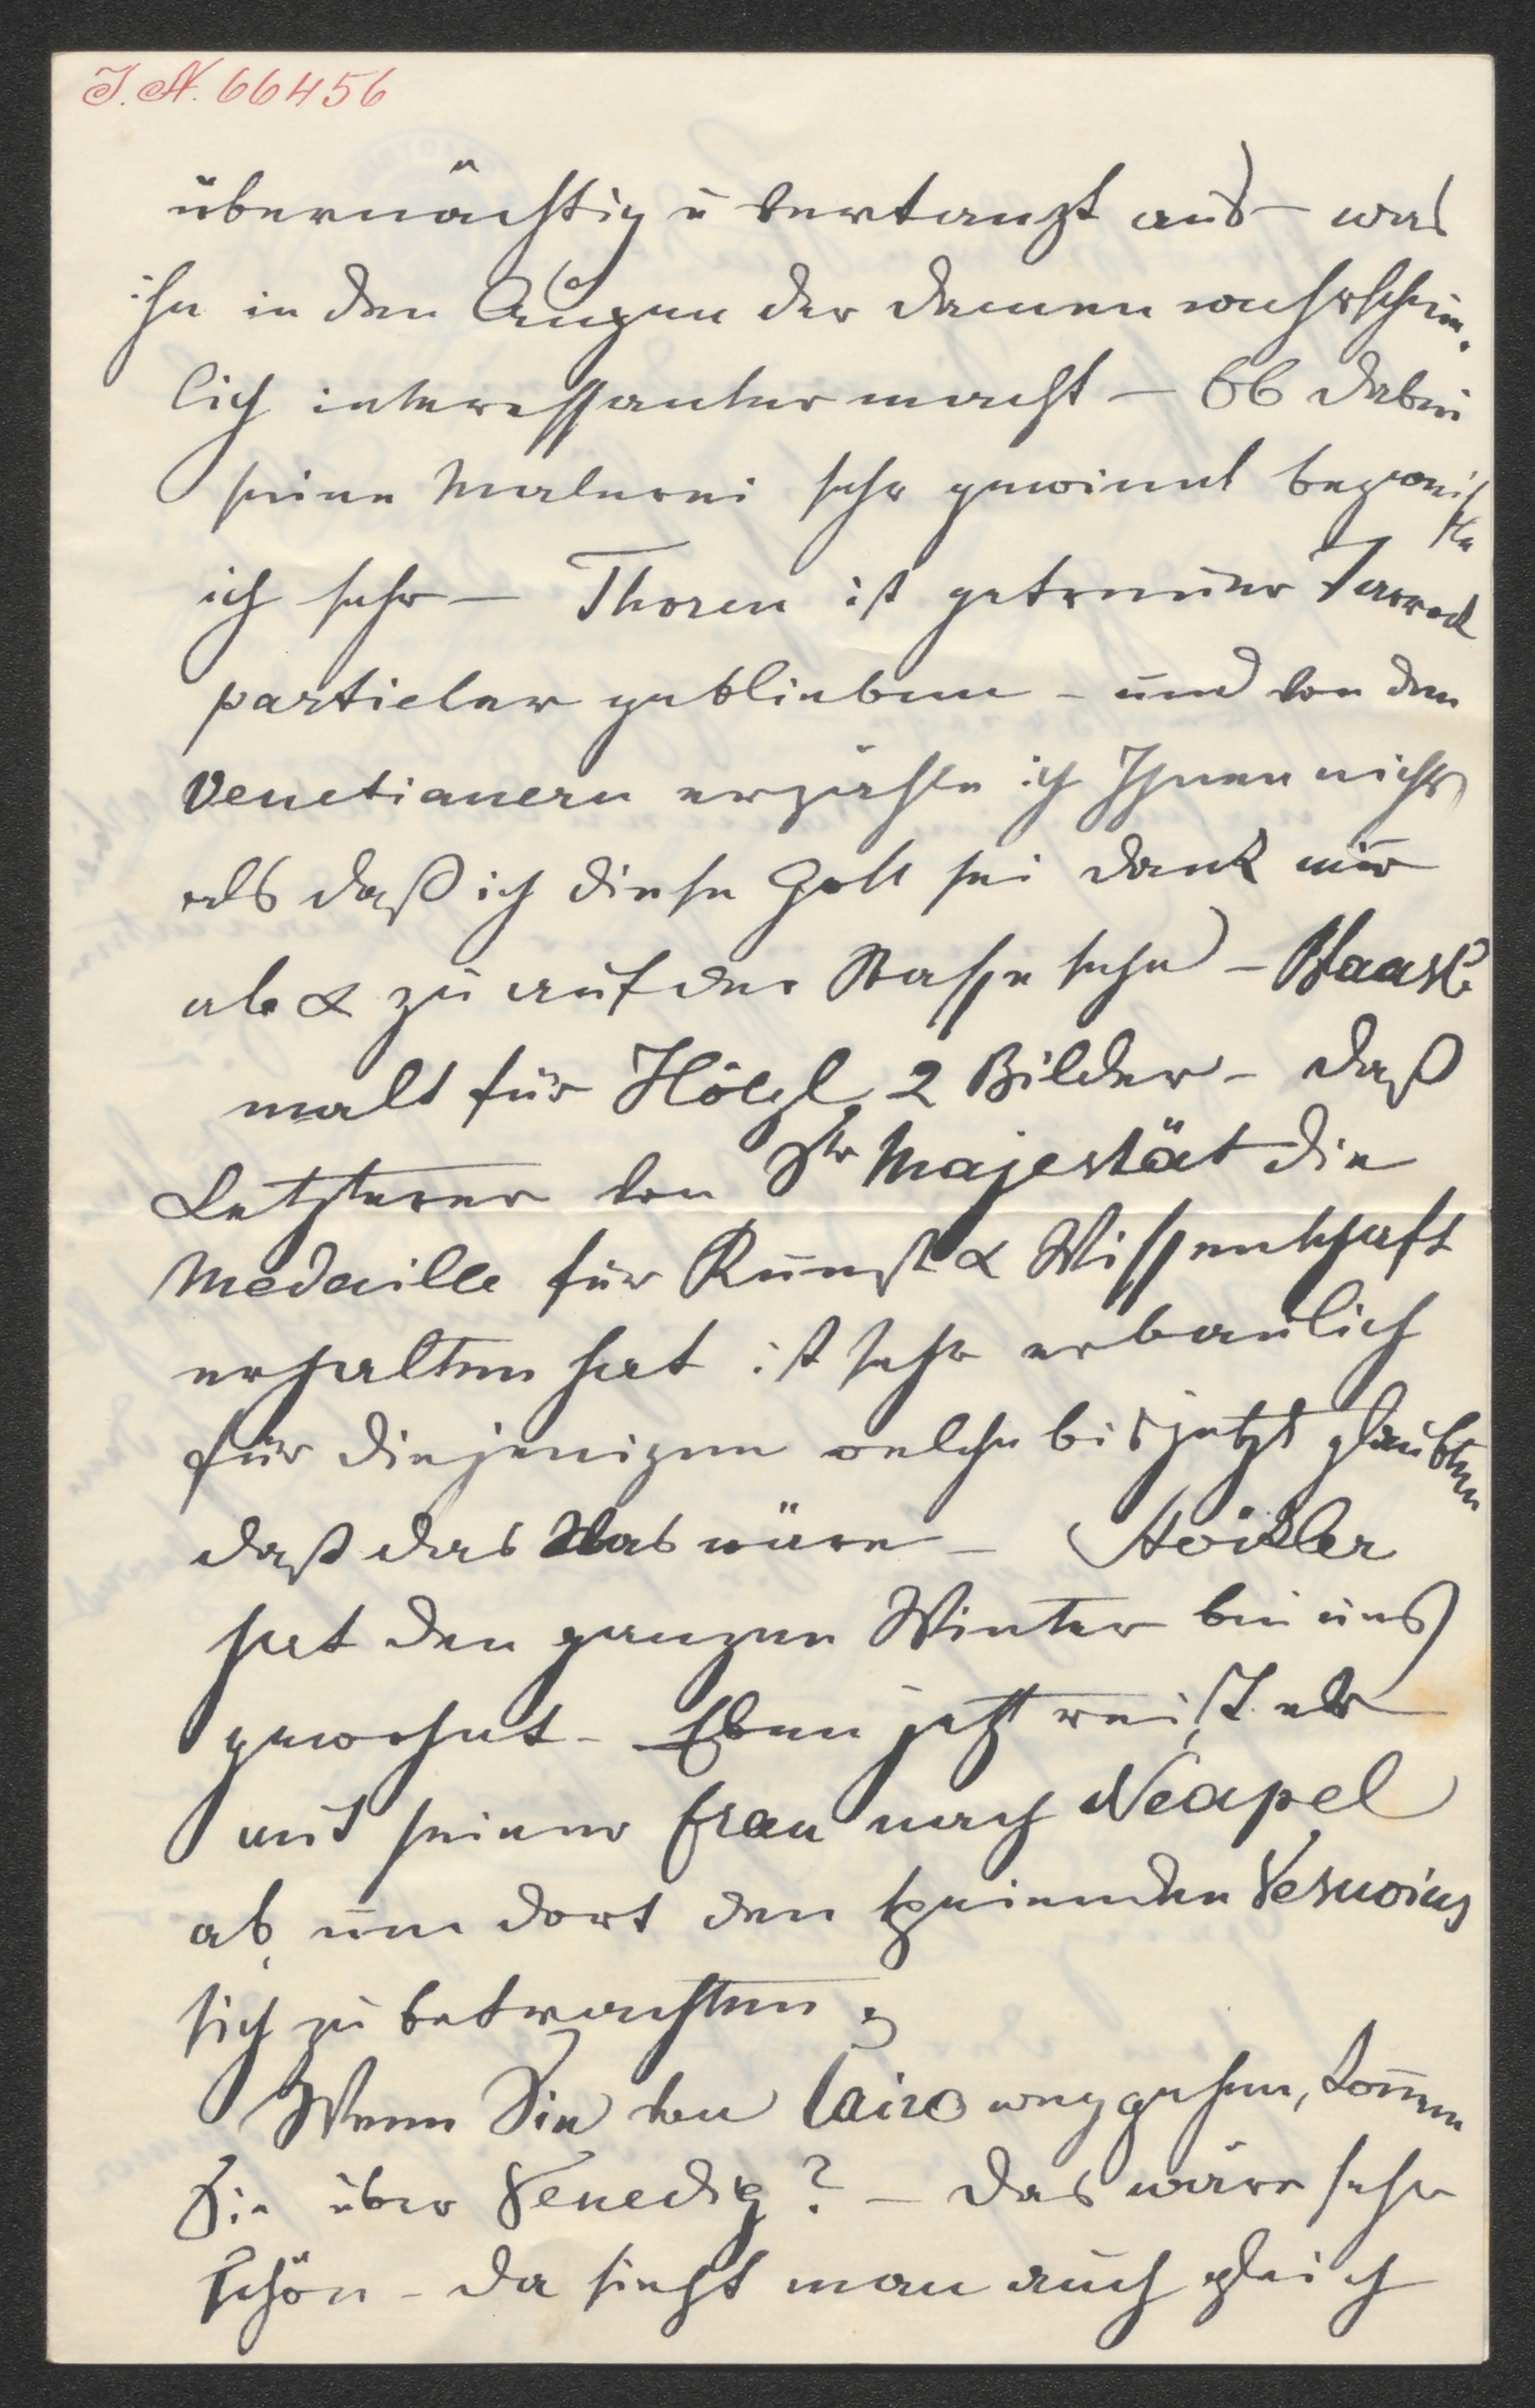 I. N. 66456
übernächtig u vertanzt aus – was
ihn in den Augen der Damen wahrschein.
lich interessanter macht – Ob dabei
seine Malerei sehr gewinnt bezweifle
ich sehr – Thoren ist getreuer
particler geblieben – und von den
Venetianern erzähle ich Ihnen nichts
als daß ich diese Gott sei dank nur
ab & zu auf der Straße sehe –
malt für 2 Bilder – daß
Letzterer von Sr Majestät die
Medaille für Kunst & Wissenschaft
erhalten hat ist sehr erbaulich
für diejenigen welche bis jetzt glaubten
daß das Was wäre –
hat den ganzen Winter bei uns
gewohnt – Eben jetzt reist er
mit seiner Frau nach Neapel
ab um dort den speienden Vesuvius
sich zu betrachten.
Wenn Sie von Cairo weggehen, kom̄en
Sie über Venedig? – das wäre sehr
schön – da sieht man auch gleich